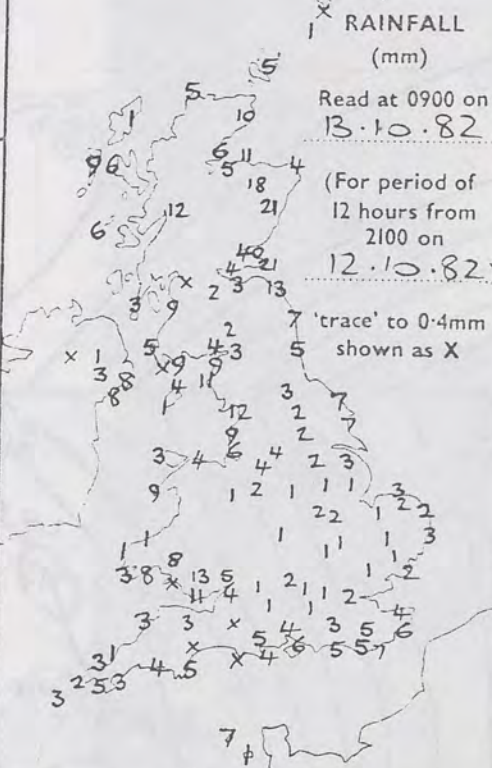 x
1
RAINFALL
(mm)
Read at 0900 on
13.10.82
(For period of
12 hours from
2100 on
12.10.82
'trace' to 0·4mm
shown as X
5
5
1 10
6 11
9 6 5 4
18
12 21
6
40
4 21
x 2 3 13
3 9
7
2
5 4 3 5
x 1 x 9 9
3 8 4 11
8 1 3 7
12 2
9 2 7
3 4 6 4 2 3
4
9 1 2 1 1 1 3
2 2 1 2 2
1 1 3
1 1 1 1
8 1
3 8 x 13 5 2 1 2
11 4 1 1 1 2
1 1 4
3 3 x 4 3 5 6
5 x 6 5 5 7
1 x x 4
3 4 5
2 5 3
3
7